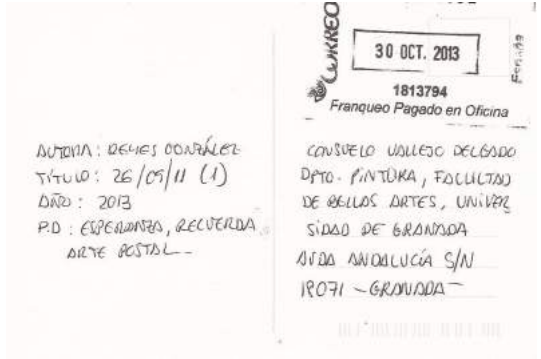 CORREO
30 OCT. 2013
España
1813794
Franqueo Pagado en Oficina
AUTORA: DELIES GONZÁLEZ
TÍTULO: 26/09/11 (1)
AÑO: 2013
P.D: ESPERANZA, RECUERDA
ARTE POSTAL_
CONSUELO VALLEJO DELGADO
DPTO. PINTURA, FACULTAD
DE BELLAS ARTES, UNIVER
SIDAD DE GRANADA
AVDA ANDALUCÍA S/N
18071 - GRANADA -